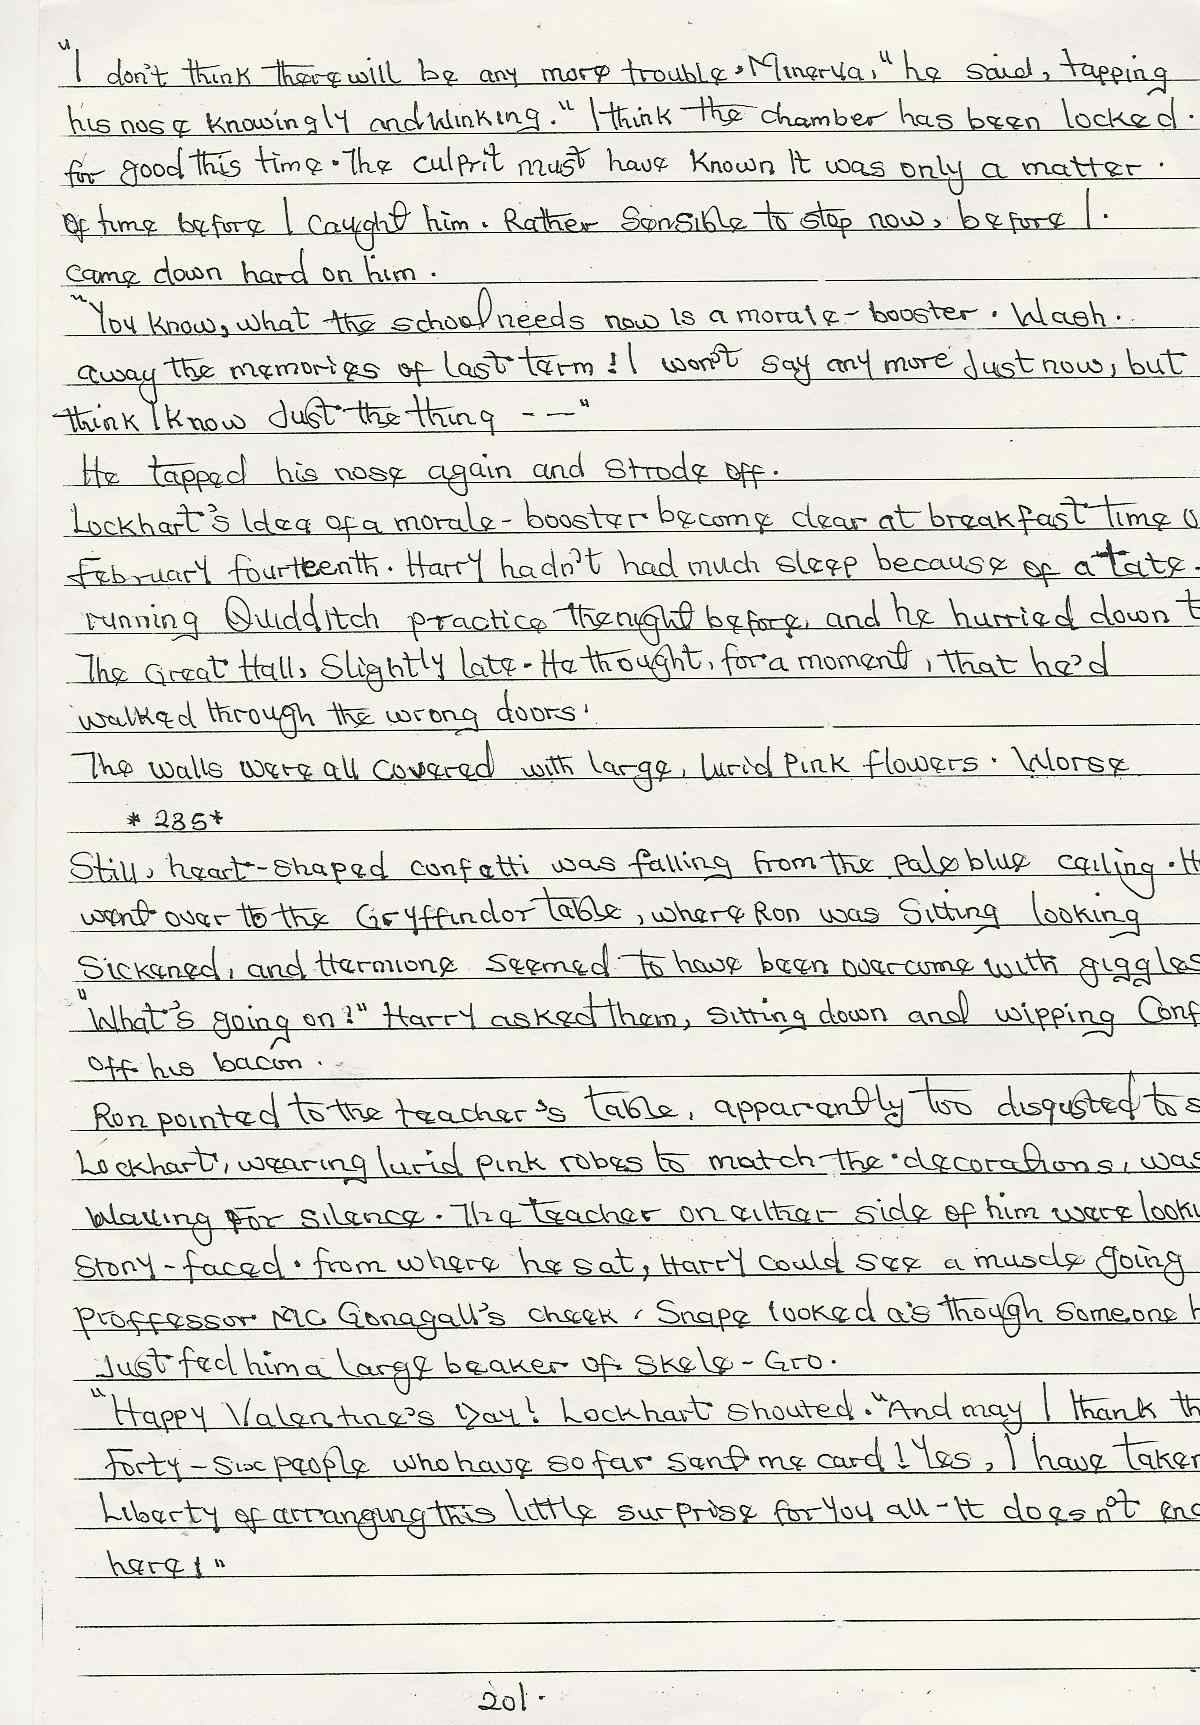 "I don't think there will be any more trouble, Minerva," he said, tapping
his nose knowingly and winking. "I think the chamber has been locked.
for good this time. The culprit must have known It was only a matter.
Of time before I caught him. Rather Sensible to stop now, before I.
came down hard on him.
"You know, what the school needs now Is a morale-booster. Wash.
away the memories of last term! I won't say any more Just now, but
think I know Just the thing - - -"
He tapped his nose again and strode off.
Lockhart's Idea of a morale-booster become clear at breakfast time o
February fourteenth. Harry hadn't had much sleep because of a late.
running Quidditch practice the night before, and he hurried down t
The Great Hall, Slightly late. He thought, for a moment, that he'd
walked through the wrong doors.
The walls were all covered with large, lurid Pink flowers. Worse
*235*
Still, heart-shaped confetti was falling from the pale blue ceiling. H
went over to the Gryffindor table, where Ron was Sitting looking
Sickened, and Hermione seemed to have been overcome with giggles
"What's going on?" Harry asked them, sitting down and wipping Conf
off his bacon.
Ron pointed to the teacher's table, apparently too disgusted to s
Lockhart, wearing lurid pink robes to match the decorations, was
Waving for silence. The teacher on either side of him were looki
Stony-faced. from where he sat, Harry could see a muscle going
Proffessor Mc Gonagall's cheek. Snape looked as though someone h
Just fed him a large beaker of Skele-Gro.
"Happy Valentine's Day! Lockhart shouted. "And may I thank th
Forty-six people who have so far sent me card! Yes, I have taken
Liberty of arranging this little surprise for You all - It doesn't end
here!"
201.